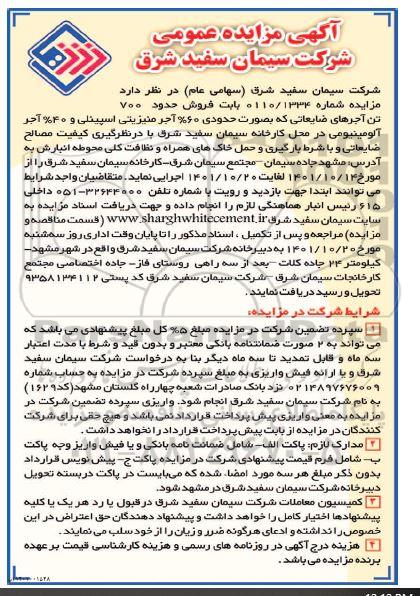 آگهی مزایده عمومی
شرکت سیمان سفید شرق
شرکت سیمان سفید شرق (سهامی عام) در نظر دارد
مزایده شماره ۰۱۱۰/۱۳۳۴ بابت فروش حدود ۷۰۰
تن آجرهای ضایعاتی که بصورت حدودی ۶۰% آجر منیزیتی اسپینلی و ۴۰% آجر
آلومینیومی در محل کارخانه سیمان سفید شرق با درنظرگیری کیفیت مصالح
ضایعاتی و با شرط بارگیری و حمل خاک های همراه و نظافت کلی محوطه انبارش به
آدرس: مشهد جاده سیمان –مجتمع سیمان شرق–کارخانه سیمان سفید شرق را از
مورخ ۱۴۰۱/۱۰/۱۴ لغایت ۱۴۰۱/۱۰/۲۰ اجرایی نماید. متقاضیان واجد شرایط
می توانند ابتدا جهت بازدید و رویت با شماره تلفن ۳۲۶۴۴۰۰۰-۰۵۱ داخلی
۶۱۵ رئیس انبار هماهنگی لازم را انجام داده و جهت دریافت اسناد مزایده به
سایت سیمان سفید شرق www.sharghwhitecement.ir (قسمت مناقصه و
مزایده) مراجعه و پس از تکمیل ، اسناد مذکور را تا پایان وقت اداری روز سه‌شنبه
مورخ ۱۴۰۱/۱۰/۲۰ به دبیرخانه شرکت سیمان سفید شرق واقع در شهر مشهد-
کیلومتر ۲۴ جاده کلات –بعد از سه راهی روستای فاز- جاده اختصاصی مجتمع
کارخانجات سیمان شرق –شرکت سیمان سفید شرق کد پستی ۹۳۵۸۱۳۴۱۱۲
تحویل و رسید دریافت نمایند.
شرایط شرکت در مزایده:
۱ سپرده تضمین شرکت در مزایده مبلغ ۵% کل مبلغ پیشنهادی می باشد که
می تواند به ۲ صورت ضمانتنامه بانکی معتبر و بدون قید و شرط با مدت اعتبار
سه ماه و قابل تمدید تا سه ماه دیگر بنا به درخواست شرکت سیمان سفید
شرق و یا ارائه فیش واریزی به مبلغ سپرده شرکت در مزایده به حساب شماره
۰۲۱۴۸۹۷۶۷۶۰۰۹ نزد بانک صادرات شعبه چهارراه گلستان مشهد(کد۱۶۲۹)
به نام شرکت سیمان سفید شرق انجام شود. واریزی سپرده تضمین شرکت در
مزایده به معنی واریزی پیش پرداخت قرارداد نمی باشد و هیچ حقی برای شرکت
کنندگان در مزایده از بابت پیش پرداخت قرارداد را نخواهد داشت.
۲ مدارک لازم: پاکت الف- شامل ضمانت نامه بانکی و یا فیش واریز وجه پاکت
ب- شامل فرم قیمت پیشنهادی شرکت در مزایده پاکت ج- پیش نویس قرارداد
بدون ذکر مبلغ هر سه مورد امضاء شده که می‌بایست در پاکت دربسته تحویل
دبیرخانه شرکت سیمان سفید شرق در مشهد شود.
۳ کمیسیون معاملات شرکت سیمان سفید شرق در قبول یا رد هر یک یا کلیه
پیشنهادها اختیار کامل را خواهد داشت و پیشنهاد دهندگان حق اعتراض در این
خصوص را نداشته و ادعای هرگونه ضرر و زیان را از خود سلب می نمایند.
۴ هزینه درج آگهی در روزنامه های رسمی و هزینه کارشناسی قیمت بر عهده
برنده مزایده می باشد.